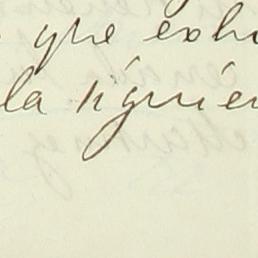 que exhi
la siguien